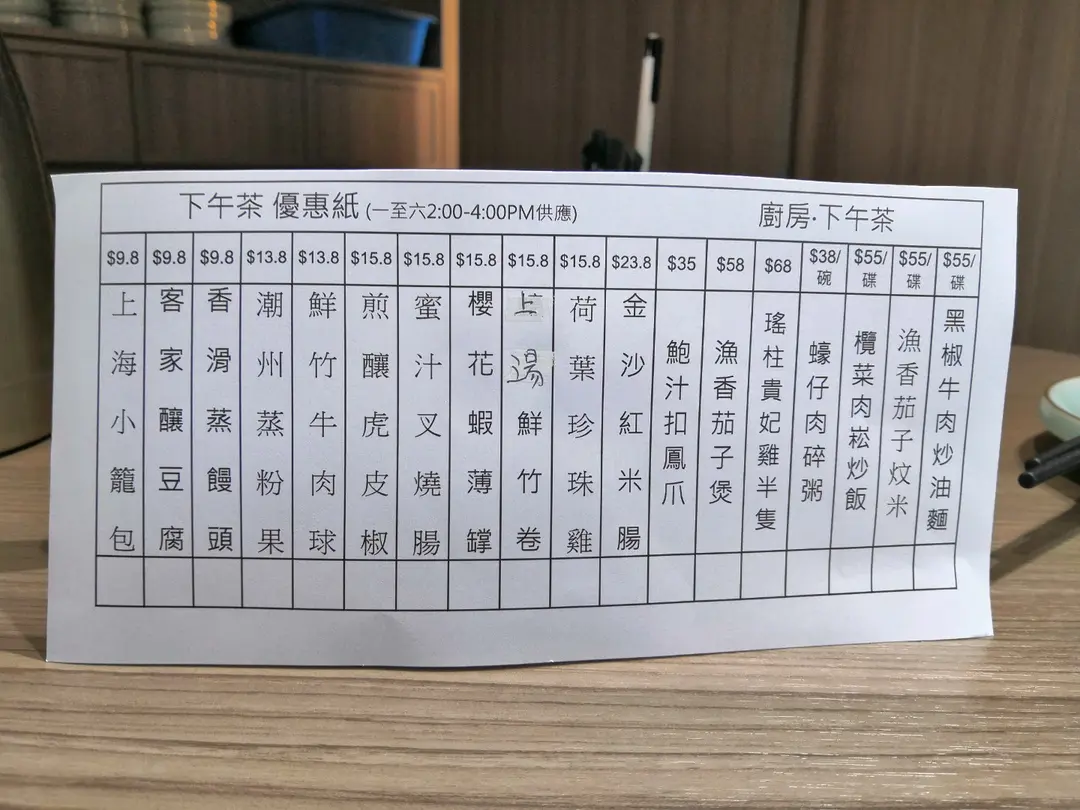 下午茶 優惠紙 (一至六2:00-4:00PM供應)
廚房·下午茶
$9.8
上海小籠包
$9.8
客家釀豆腐
$9.8
香滑蒸饅頭
$13.8
潮州蒸粉果
$13.8
鮮竹牛肉球
$15.8
煎釀虎皮椒
$15.8
蜜汁叉燒腸
$15.8
櫻花蝦薄罉
$15.8
上湯鮮竹卷
$15.8
荷葉珍珠雞
$23.8
金沙紅米腸
$35
鮑汁扣鳳爪
$58
漁香茄子煲
$68
瑤柱貴妃雞半隻
$38/碗
蠔仔肉碎粥
$55/碟
欖菜肉崧炒飯
$55/碟
漁香茄子炆米
$55/碟
黑椒牛肉炒油麵